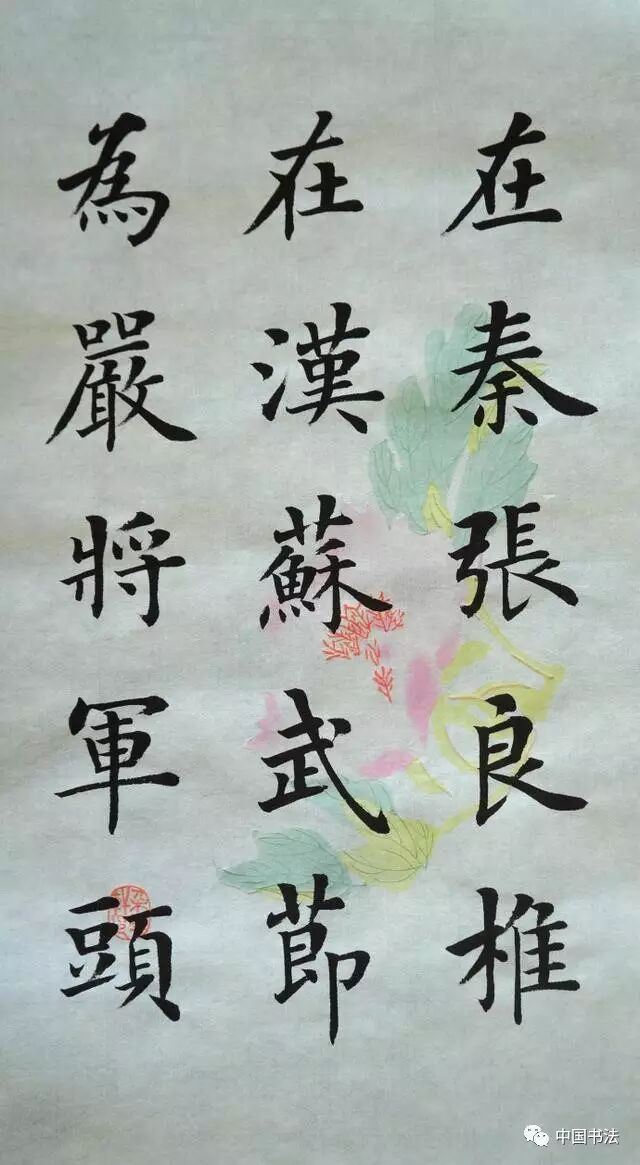 在秦張良椎
在漢蘇武節
為嚴將軍頭
中国书法